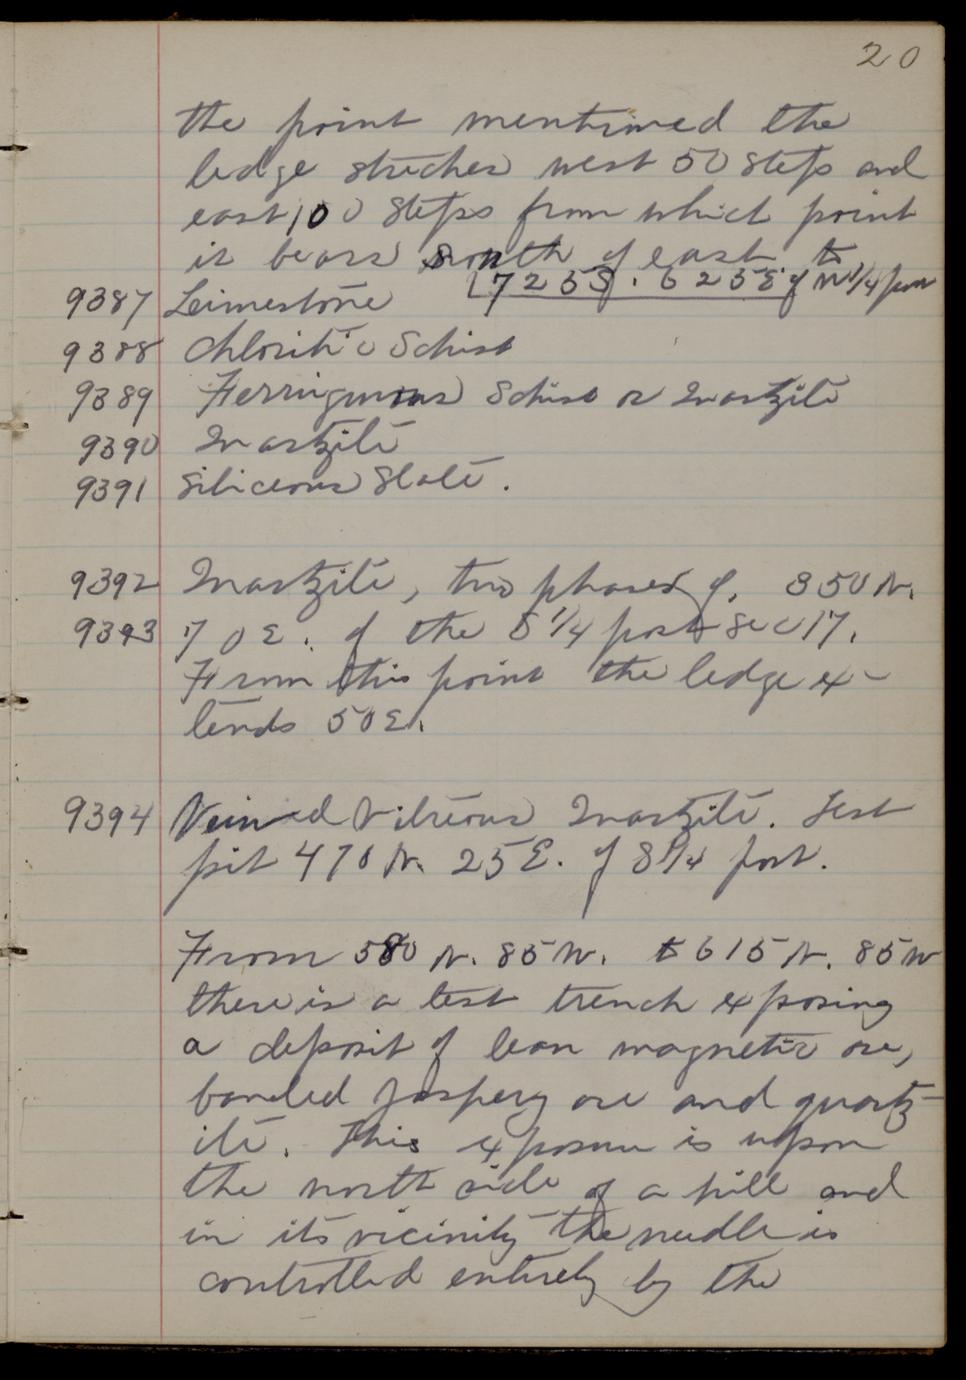 20
the point mentioned the
ledge streches west 50 steps and
east 100 steps from which point
it bears south of east to
725S. 625E. of N 1/4 post
9387 Leimestone
9388 Chloritic Schist
9389 Ferriginous Schist or Quartzite
9390 Quartzite
9391 Siliceous Slate.
9392 Quartzite, two phases of. 350 N.
9393 70 E. of the S 1/4 post Sec 17.
From this point the ledge ex-
tends 50 E.
9394 Veined Vitreous Quartzite. Test
pit 470 N. 25 E. of S 1/4 post.
From 580 N. 85 W. to 615 N. 85 W
there is a test trench exposing
a deposit of lean magnetic ore,
banded Jaspery ore and quartz-
ite. This exposure is upon
the north side of a hill and
in its vicinity the needle is
controlled entirely by the